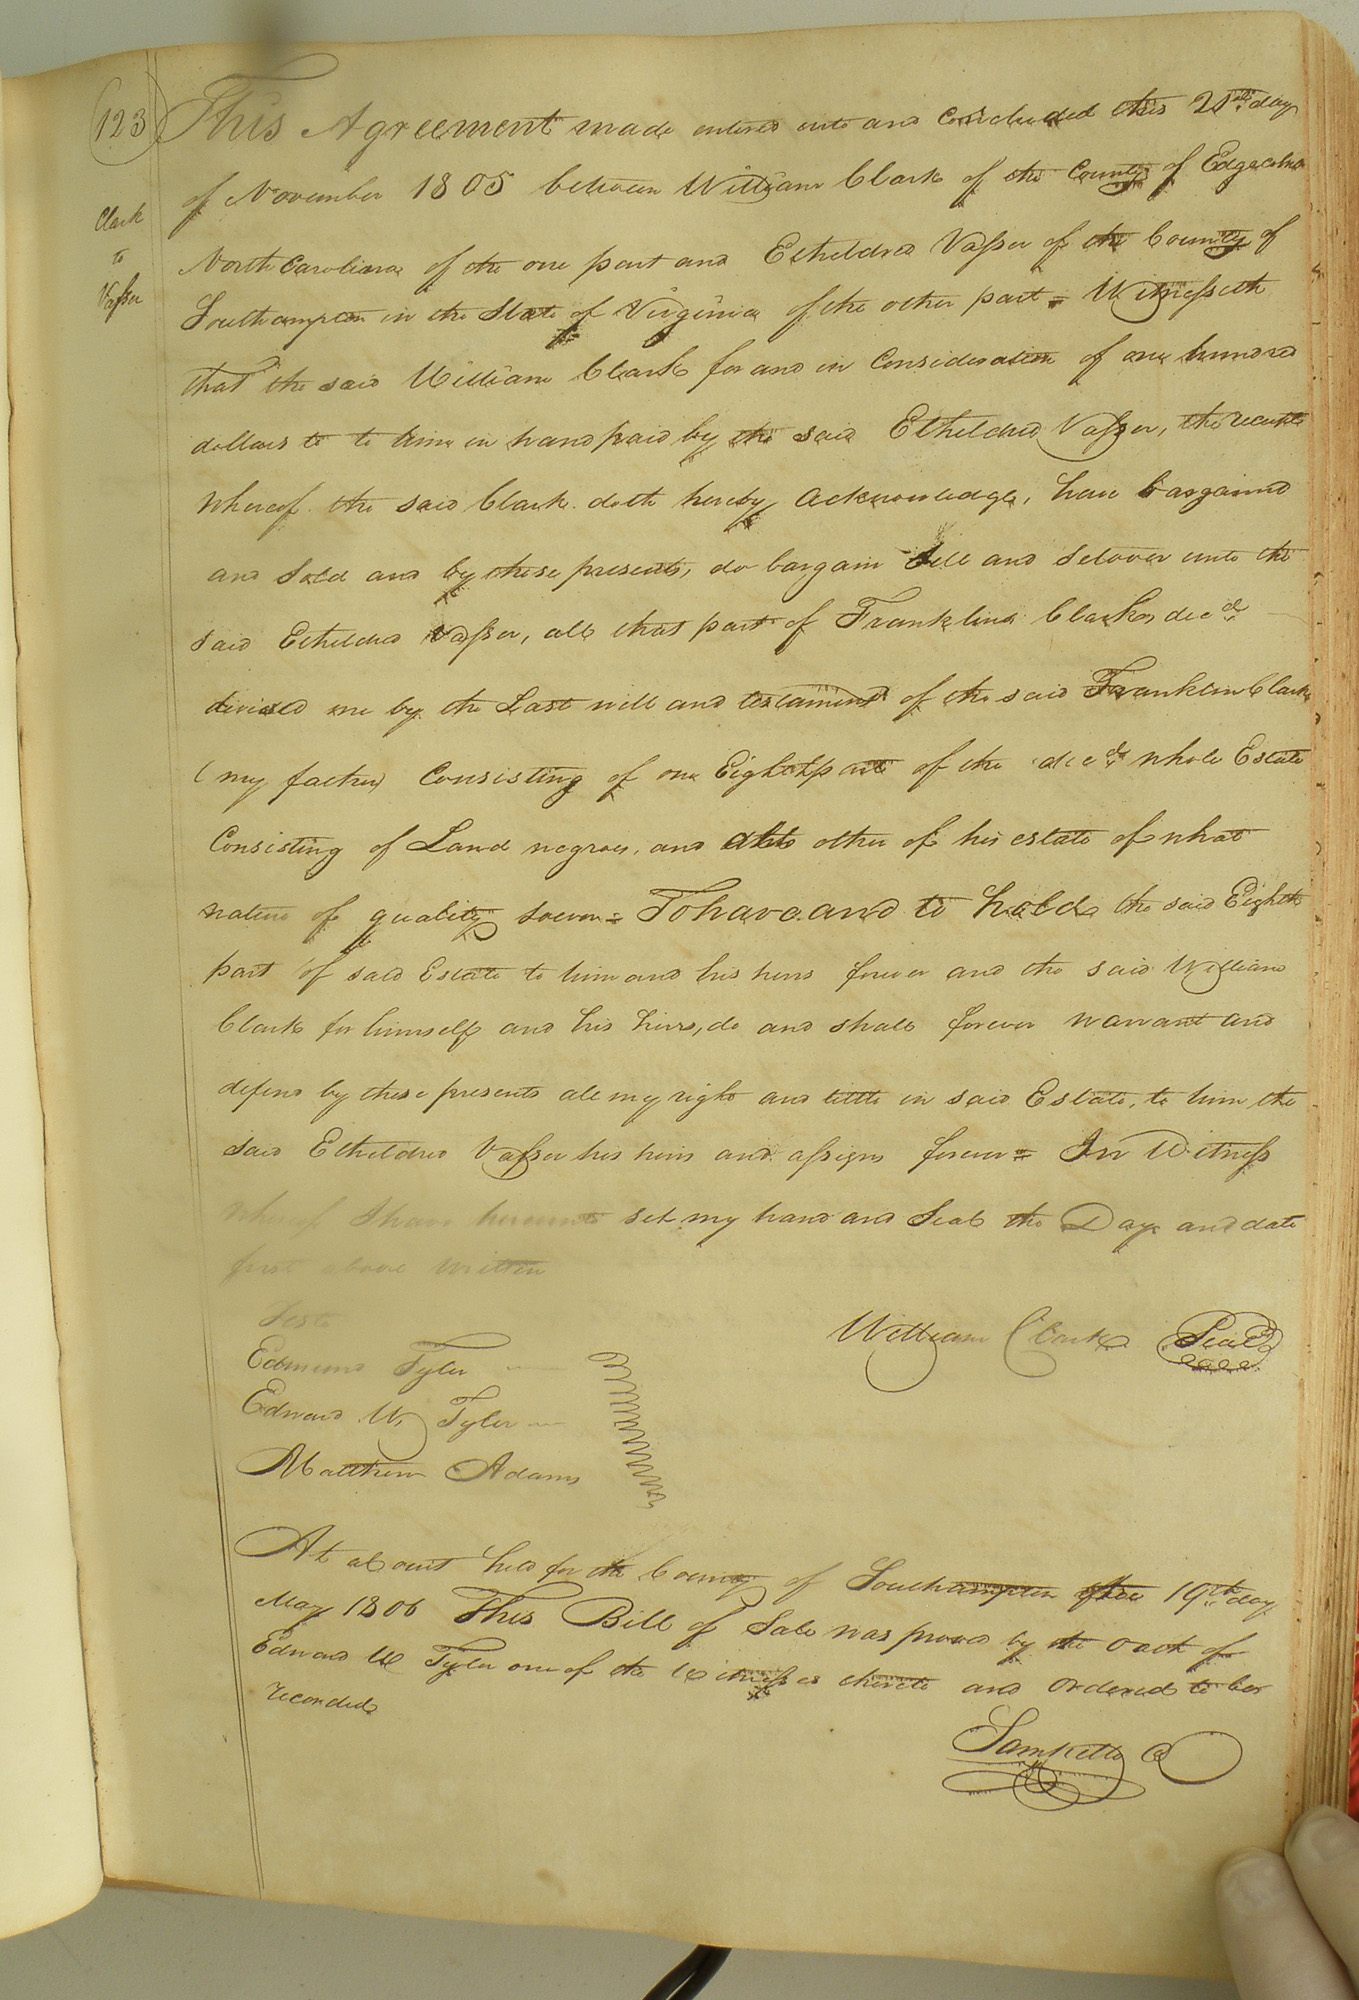 123
This Agreement made entered into and concluded this 21st day
of November 1805 between William Clark of the County of Edgecomb
Clark
to
Vasser
North Carolina of the one part and Etheldred Vasser of the County of
Southampton in the State of Virginia of the other part = Witnesseth
that the said William Clark for and in Consideration of one hundred
dollars to to him in hand paid by the said Etheldred Vasser, the receipt
Whereof the said Clark doth hereby acknowledge, have bargained
and Sold and by these presents, do bargain Sell and Setover unto the
said Etheldred Vasser, all that part of Franklin Clarks decd.
devised me by the Last will and testament of the said Franklin Clark
(my father) Consisting of one Eighth part of the decd. whole Estate
Consisting of Land negroes, and all other of his estate of what
nature of quality soever = To have and to hold the said Eighth
part of said Estate to him and his heirs forever and the said William
Clark for himself and his heirs, do and shall forever warrant and
defend by these presents all my right and tittle in said Estate, to him the
said Etheldred Vasser his heirs and assigns forever = In Witness
whereof I have hereunto set my hand and Seal the Day and date
first above written
Test
William Clark Seal
Edmund Tyler
Edward W. Tyler
Matthew Adams
At a Court held for the County of Southampton the 19th day
May 1806 This Bill of Sale was proved by the oath of
Edward W Tyler one of the Witnesses thereto and ordered to be
recorded
Saml Kello C